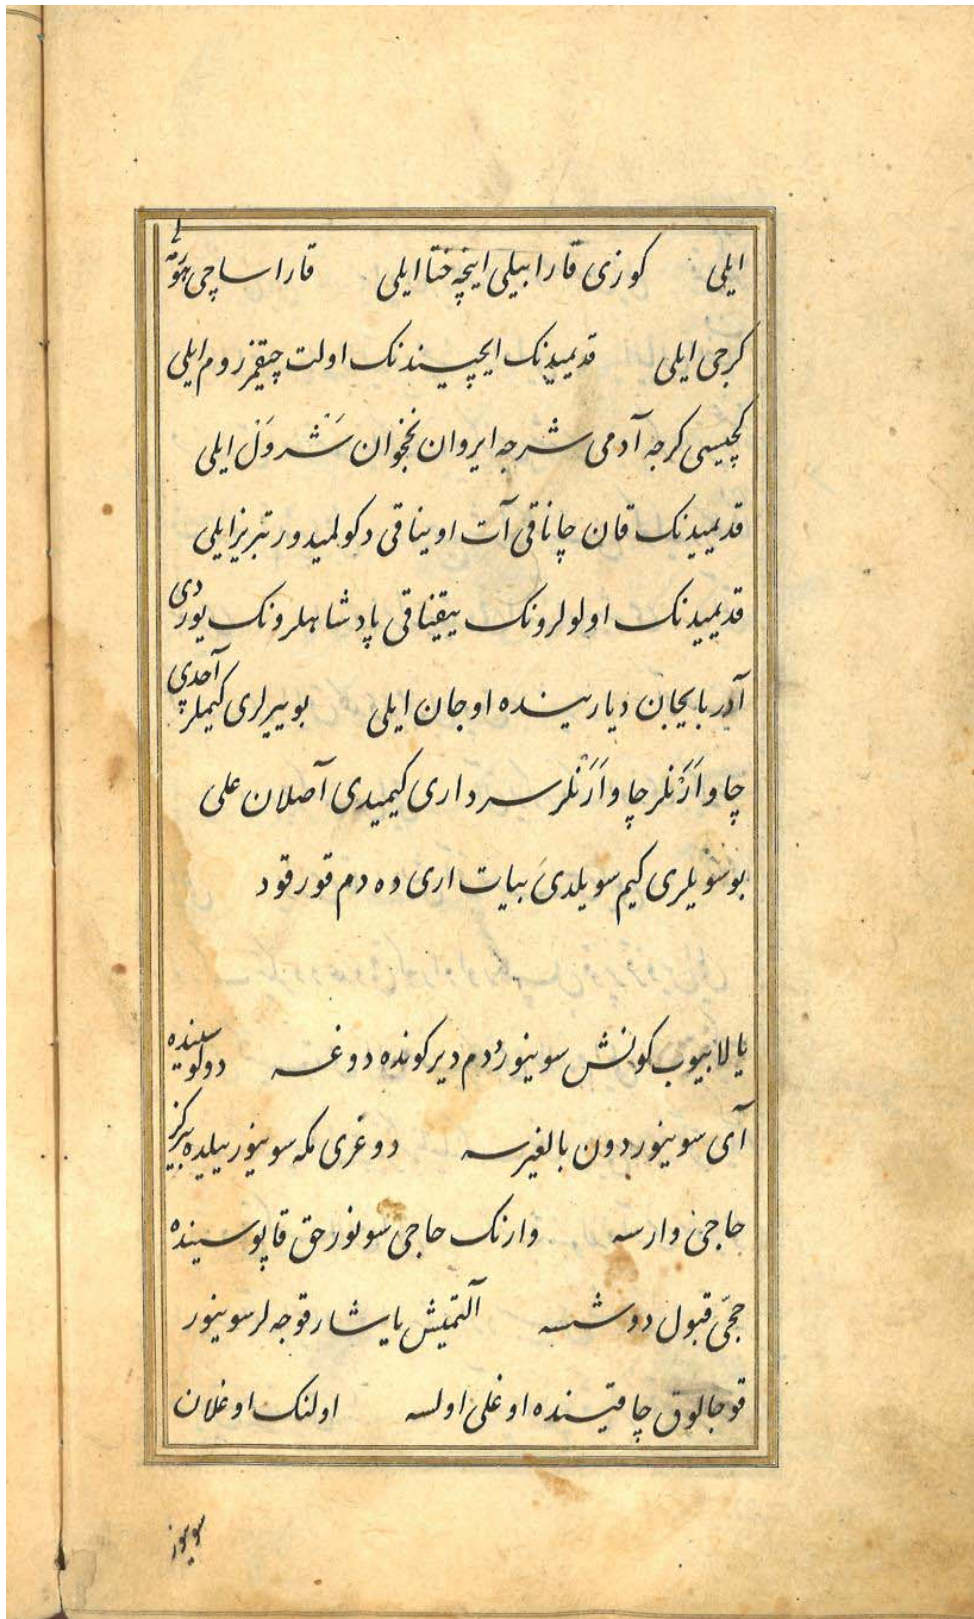 ایلی کوزی قارا بیلی اینچه ختا ایلی قارا ساچی
کرجی ایلی قدیمیدنک ایچیسیندنک اولت چیقمز روم ایلی
کچیسی کرجه آدمی شرجه ایروان نخجوان شرول ایلی
قدیمیدنک قان چاناقی آت اویناقی دکولمیدور تبریز ایلی
قدیمیدنک اولولرونک ییقناقی پادشاهلرونک یوردی
آذربایجان دیارینده اوجان ایلی بو ییرلری کیملر آحدی
سرداری کیمیدی آصلان علی
بو سویلری کیم سویلدی بیات اری ده دم قورقود
یالابیوب کونش سوینور دم دیر کونده دوغسه دولوسینده
آی سوینور دون بالغیرسه دوغری مکه سوینور ییلیده بیرکز
حاجی وارسه وارنک حاجی سونور حق قاپوسینده
حجی قبول دوشسه آلتمیش یاشار قوجه لر سوینور
قوجالوق چاقینده اوغلی اولسه اولنک اوغلان
سوینور